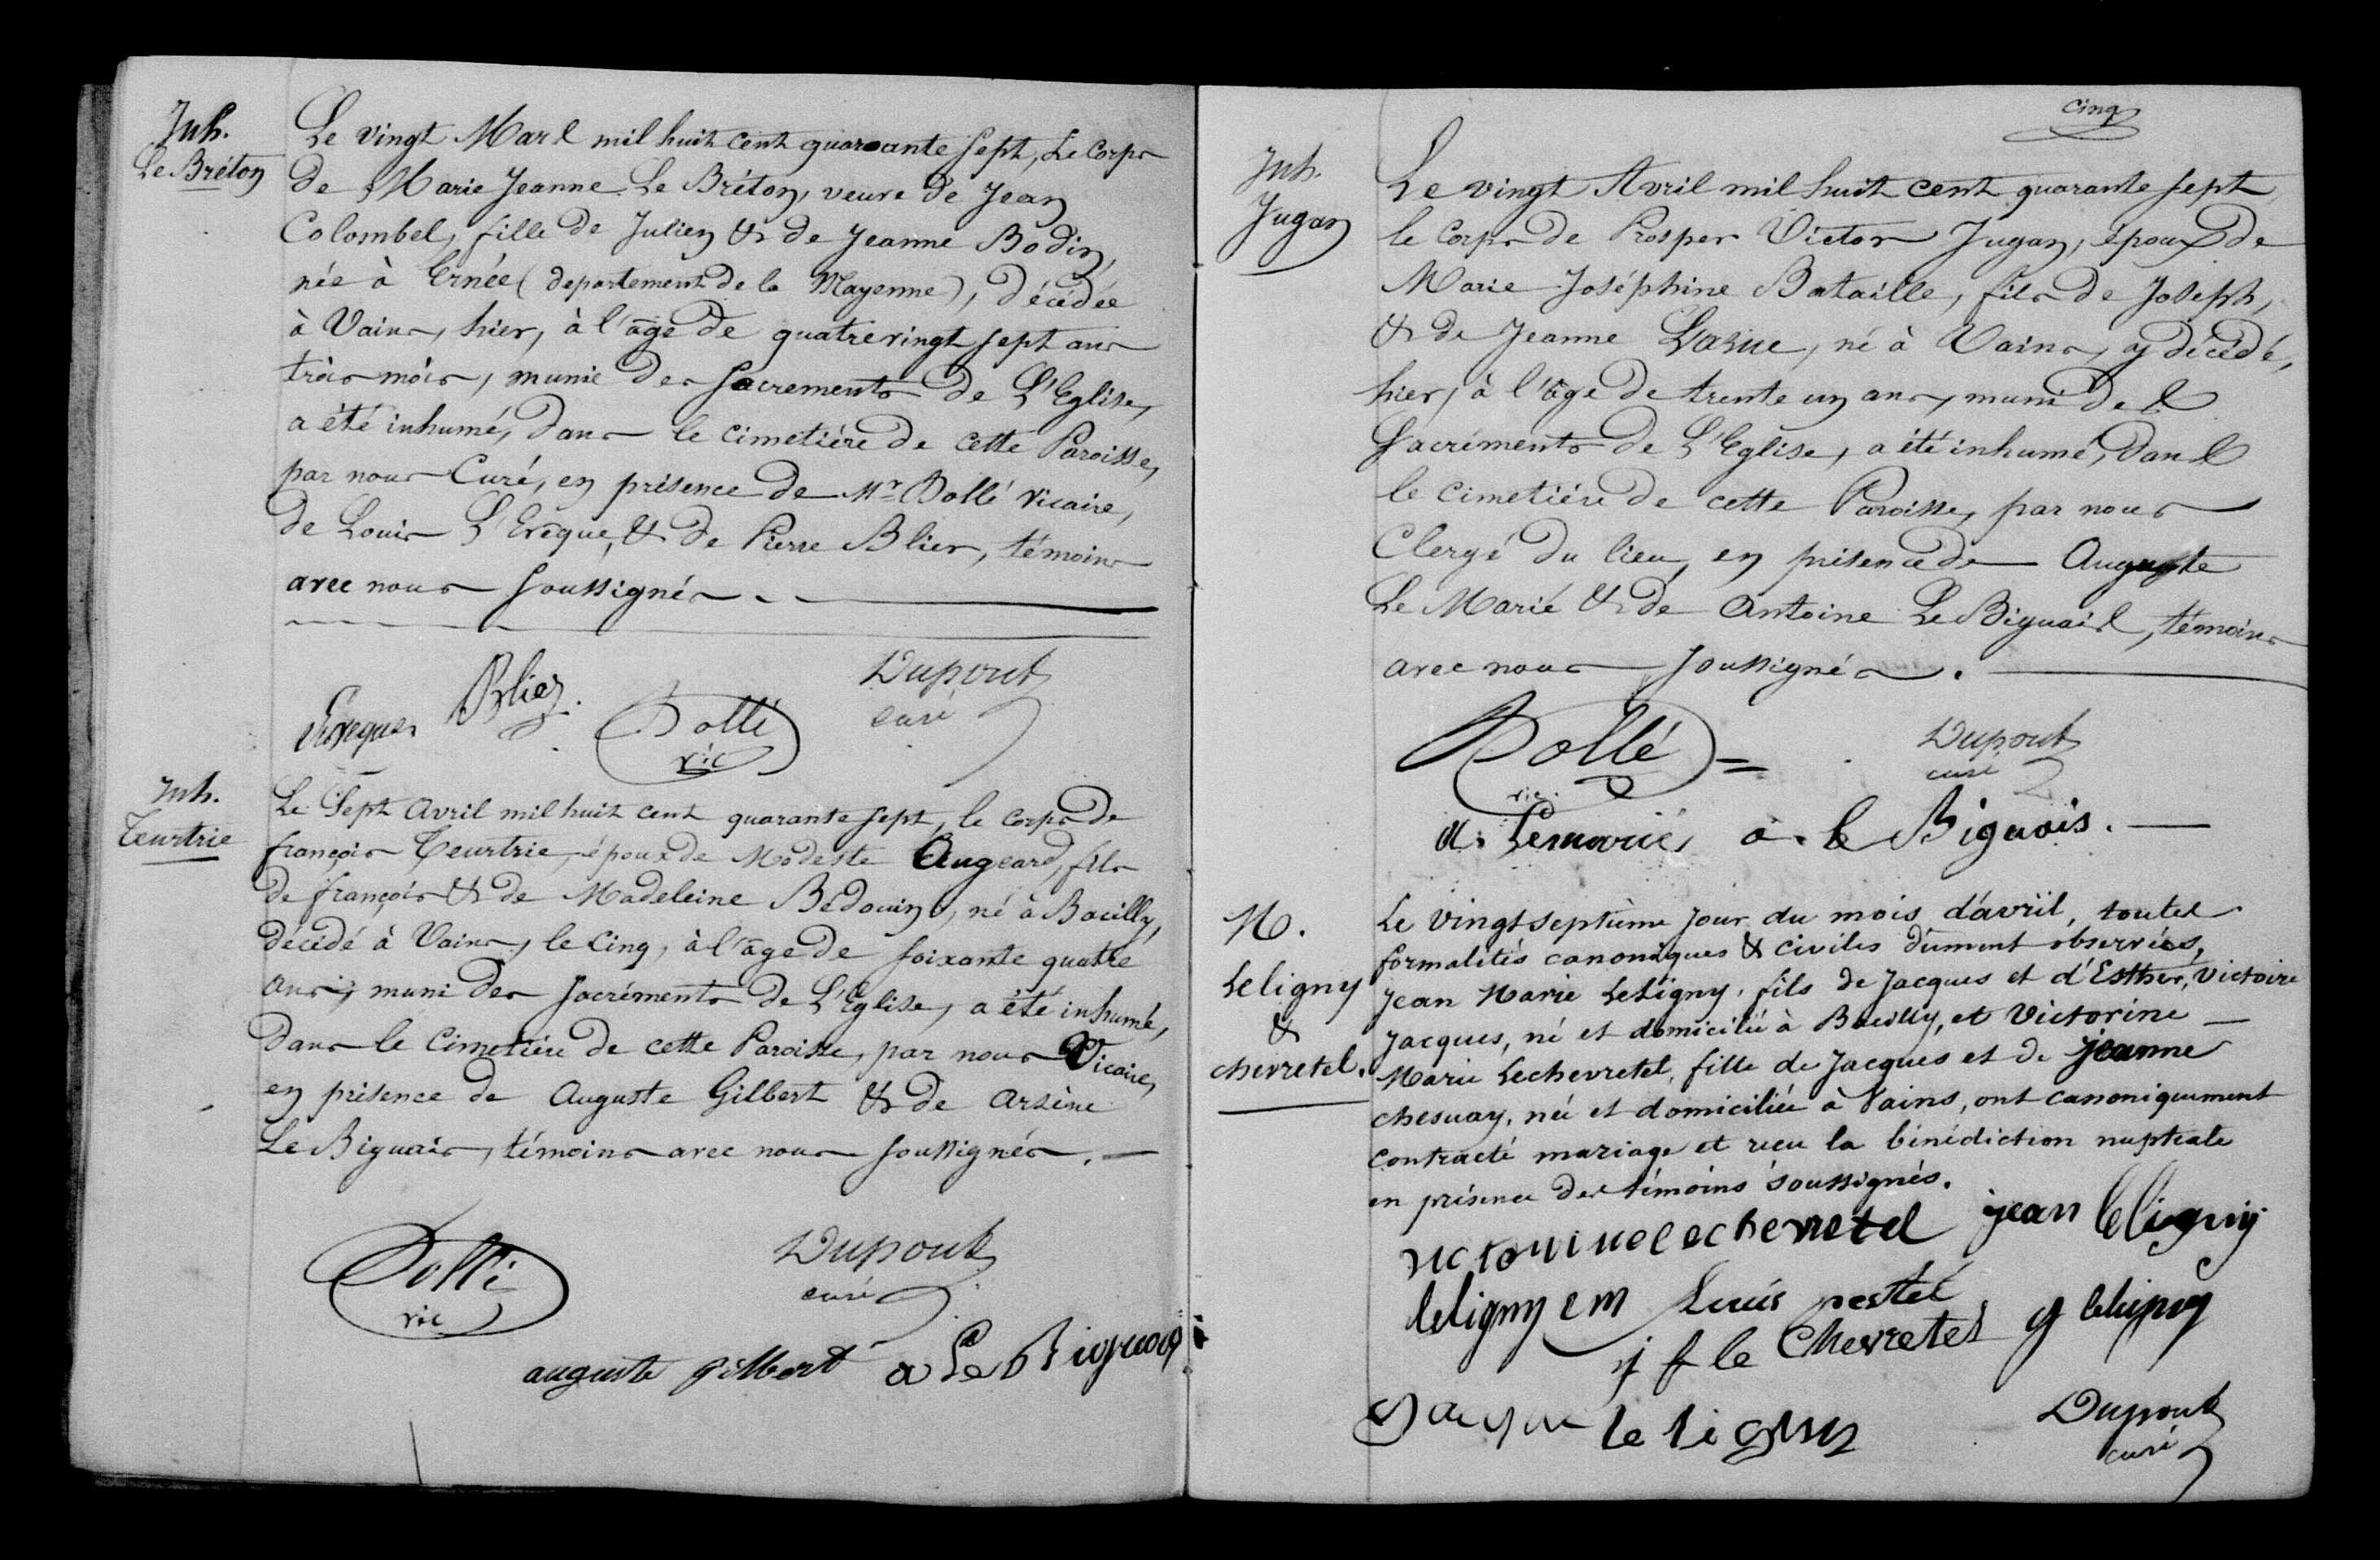 Inh.
Le Bréton
Le vingt Mars mil huit cent quarante sept, Le corps
de Marie Jeanne Le Bréton, veuve de Jean
Colombel, fille de Julien & de Jeanne Bodin,
née à Ernée (departement de la Mayenne), décédée
à Vains, hier, à l'âge de quatrevingt sept ans
trois mois, munie des sacrements de L'Eglise,
a été inhumé, dans le cimetière de cette Paroisse,
par nous Curé, en présence de Mr Dollé vicaire,
de Louis L'Evêque, & de Pierre Blier, témoins
avec nous soussignés.
Blier
Dollé
vic
Dupont
curé
Inh.
Teurtrie
Le Sept avril mil huit cent quarante sept, le corps de
françois Teurtrie, époux de Modeste Augeard, fils
de françois & de Madeleine Bédouin, né à Bacilly,
décédé à Vains, le cinq, à l'âge de soixante quatre
ans, muni des sacréments de L'Eglise, a été inhumé,
dans le Cimetière de cette Paroisse, par nous Vicaire,
en présence de Auguste Gilbert & de Arsène
Le Biguais, témoins avec nous soussignés.
Dollé
vic
Dupont
curé
auguste gilbert a Le Biguais
cinq
Inh.
Jugan
Le vingt Avril mil huit cent quarante sept
le corps de Prosper Victor Jugan, époux de
Marie Joséphine Bataille, fils de Joseph,
& de Jeanne Lasne, né à Vains, y décédé,
hier, à l'âge de trente un ans, muni des
sacréments de L'Eglise, a été inhumé, dans
le cimetière de cette Paroisse, par nous
Clergé du lieu, en présence de Auguste
Le Marié & de Antoine Le Biguais, témoins
avec nous soussignés.
Dollé
vic.
Dupont
curé
a. Lemarié a. le Biguais.
M.
Leligny
&
chevretel.
Le vingt septième jour du mois d'avril, toutes
formalités canoniques & civiles dûment observées,
Jean Marie Leligny, fils de Jacques et d'Esther, Victoire
Jacques, né et domicilié à Bacilly, et Victorine
Marie Lechevretel, fille de Jacques et de jeanne
chesnay, née et domiciliée à Vains, ont canoniquement
contracté mariage et reçu la bénédiction nuptiale
en présence des témoins soussignés.
victorine lechevretel jean leligny
leligny em Louis restel
j f le Chevretel g leligny
Jacque le ligny
Dupont
curé